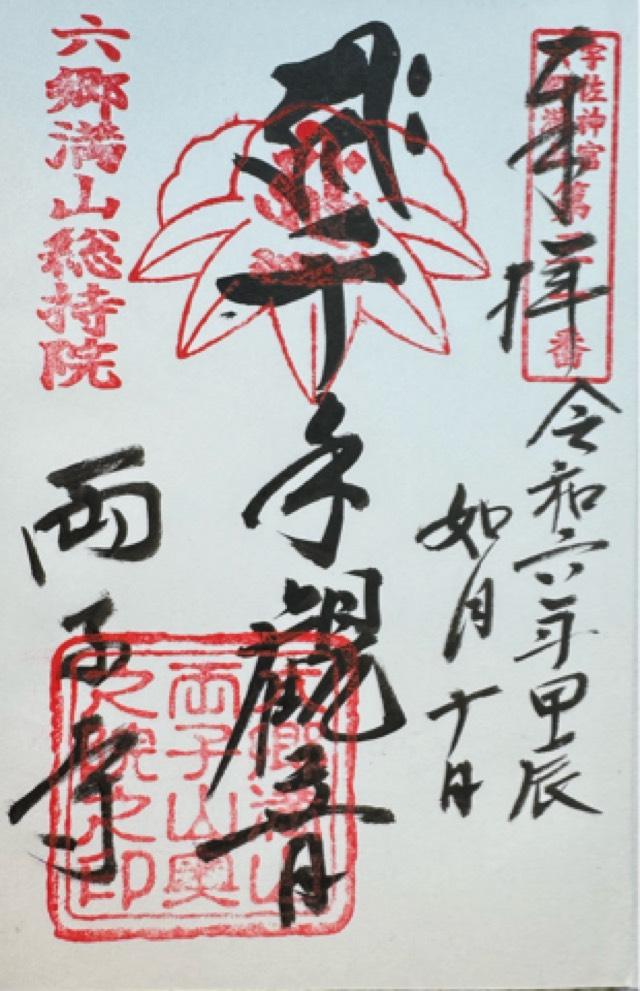 宇佐神宮
六郷満山
奉拝
令和六年甲辰
如月十日
千手観音
六郷満山
両子山奥
之院之印
六郷満山総持院
両子寺